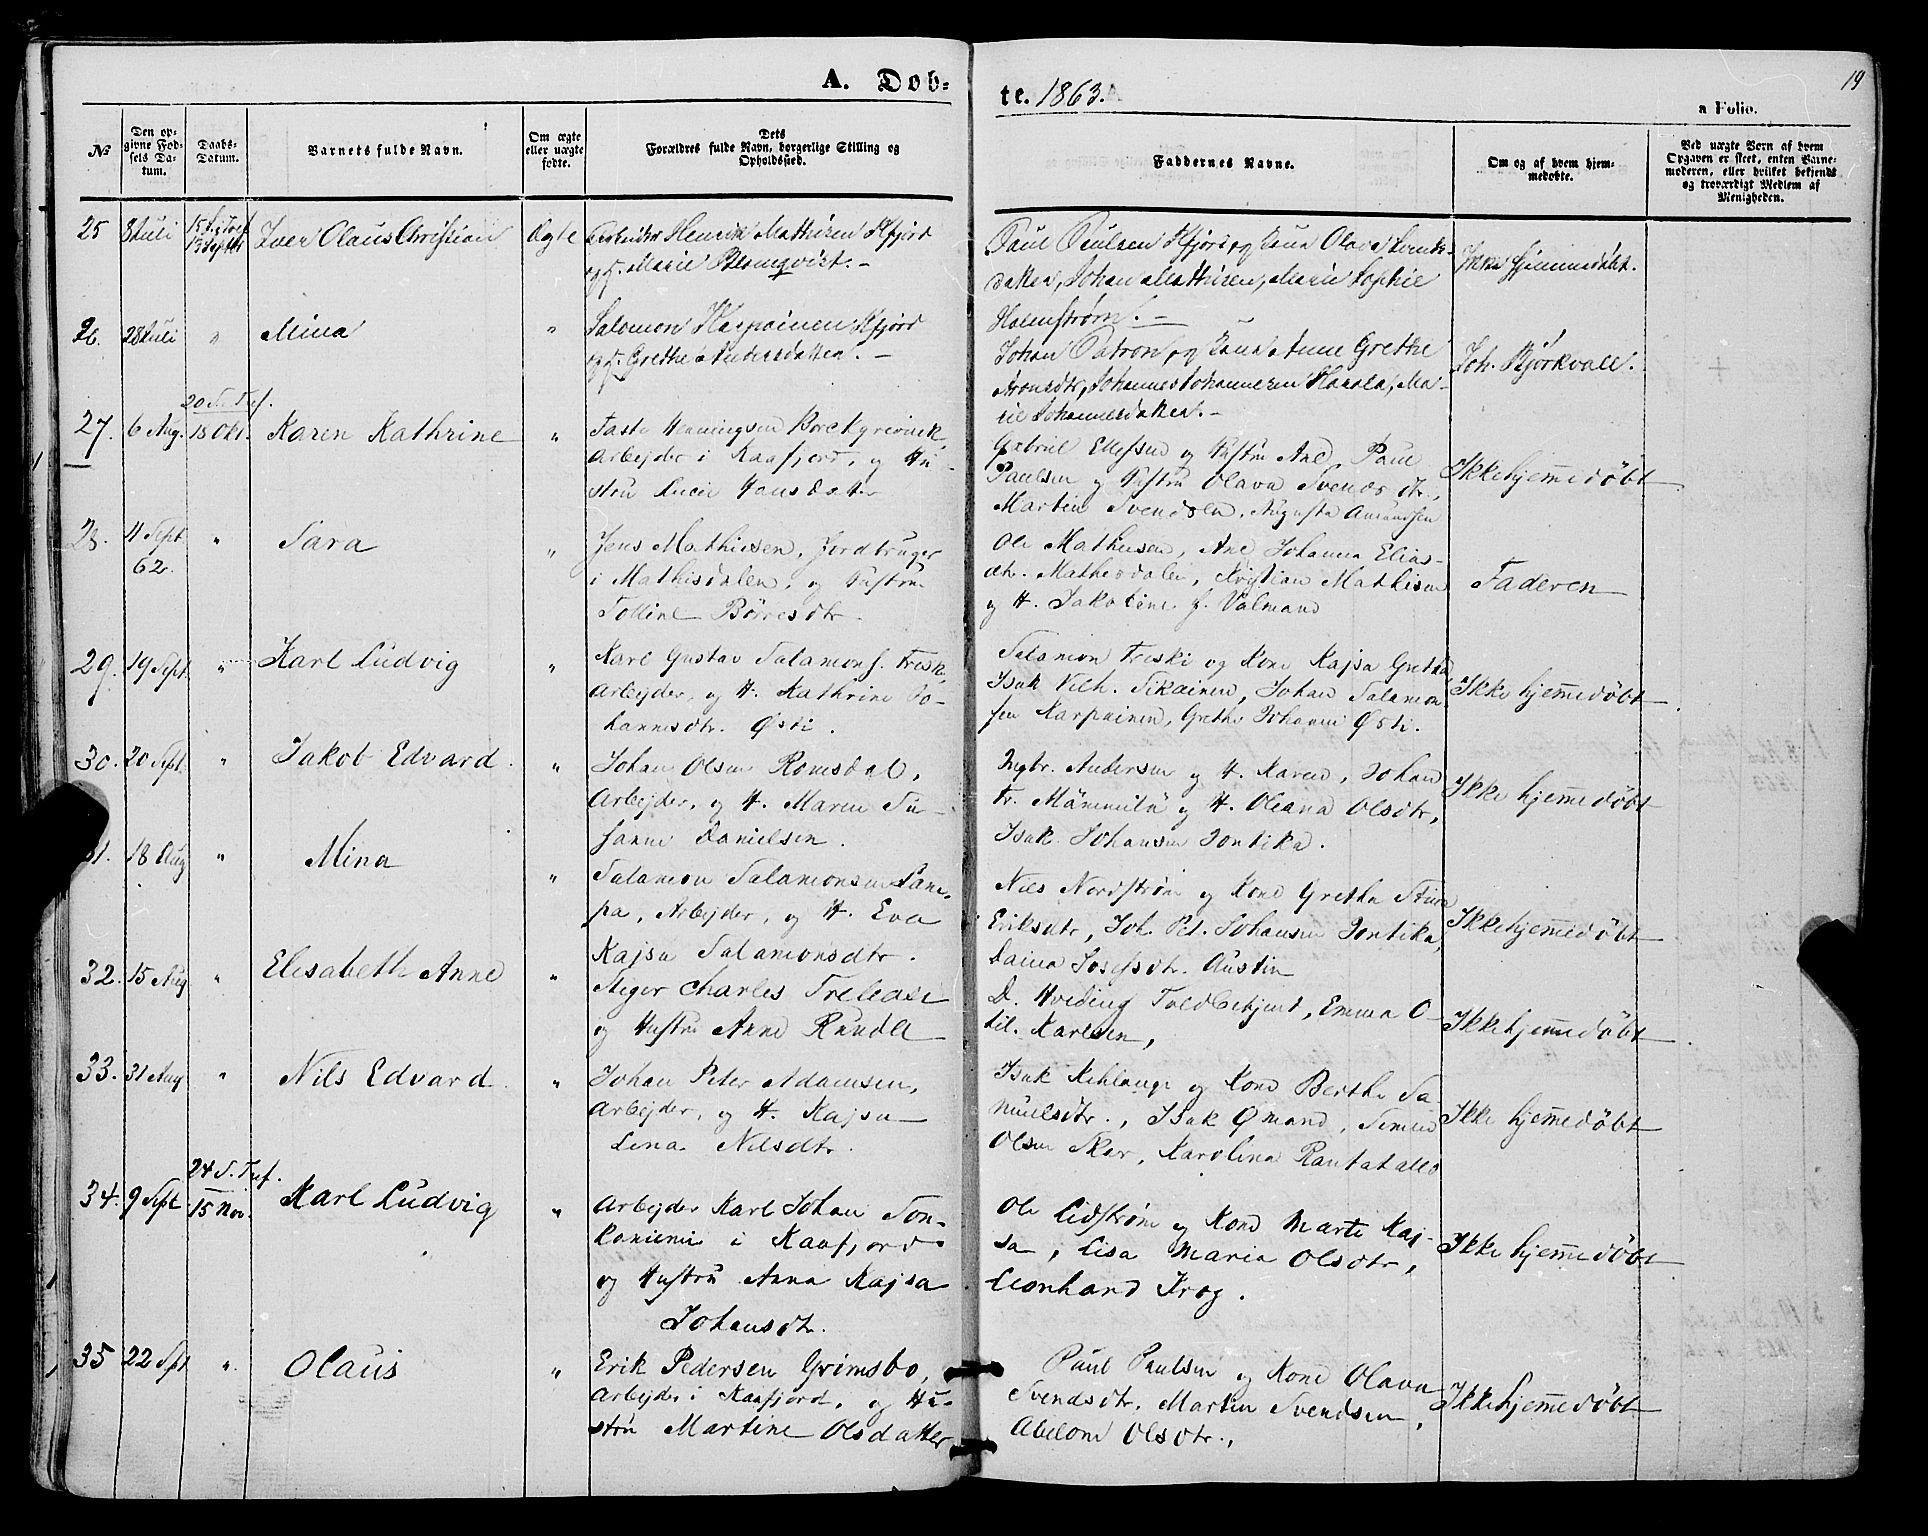 A. Dob-
te. 1863.
19
a Folio.
№
Den op-
givne Fød-
sels Da-
tum.
Daabs-
Datum.
Barnets fulde Navn.
Om ægte
eller uægte
fødte.
Dets
Forældres fulde Navn, borgerlige Stilling og
Opholdssted.
Faddernes Navne.
Om og af hvem hjem-
medøbte.
Ved uægte Børn af hvem
Opgaven er skeet, enten Barne-
moderen, eller hvilket bekjendt
og troværdigt Medlem af
Menigheden.
25 8 Juli
13 Septbr
Iver Olaus Christian
Ægte
Arbeider Henrik Mathisen Kfjord
og H. Marie Blomqvist. –
Paul Paulsen Kfjord, og Kona Olava Svends-
datter, Johan Mathisen, Marie Sophie
Holmstrøm. –
Ikke hjemmedøbt.
26. 28 Juli " Mina "
Salomon Karpainen Kfjord
og H. Grethe Andersdatter. –
Johan Patron, og Kona Anne Grethe
Johannes Johannesen Harola, Ma-
rie Johannesdatter. –
Joh. Bjørkvall.
+
27. 6 Aug.
20 S. Tref.
18 Okt.
Karen Kathrine "
Henningsen Borchgrevink
Arbejder i Kaafjord, og Hu-
stru Lucie Hansdatter
Gabriel Ellefsen og Hustru Ane, Paul
Paulsen og Hustru Olava Svendsdtr.,
Martin Svendsen, Augusta Amundsen
Ikke hjemmedøbt.
28. 4 Sept
62.
" Sara "
Jens Mathiesen, Jordbruger
i Mathisdalen, og Hustru
Børresdtr.
Ole Mathisen, Ane Johanna Elias-
dtr. Mathisdalen, Kristian Mathisen
og H. Jakobine f. Valmand
Faderen
29. 19 Sept. " Karl Ludvig "
Karl Gustav Salamons. Friski,
Arbejder, og H. Kathrine Jo-
hannesdtr. Østi.
Salamon Friski og Kone Kajsa Gretha
Isak Vilh. Sikainen, Johan Salamon-
sen Karpainen, Grethe Johanne Østi.
Ikke hjemmedøbt.
30. 20 Sept. " Jakob Edvard. "
Johan Olsen Romsdal,
Arbejder, og H. Maren Su-
sanne Danielsen.
Ingbr. Andersen og H. Karen, Johan
Fr. Mämmilä og H. Oleana Olsdtr,
Isak Johansen Jontika.
Ikke hjemmedøbt
31. 18 Aug " Mina "
Salamon Salamonsen Lam-
pa, Arbejder, og H. Eva
Kajsa Salamonsdtr.
Nils Nordstrøm og Kone Gretha Stina
Eriksdtr, Joh. Pet. Johansen Jontika,
Josefsdtr. Austin
Ikke hjemmedøbt
32. 15 Aug " Elisabeth Anne "
Stiger Charles Trelease
og Hustru Anne Rundle
D. Hveding Toldbetjent, Emma O-
til. Karlsen,
Ikke hjemmedøbt.
33. 31 Aug " Nils Edvard. "
Johan Peter Adamsen,
Arbejder, og H. Kajsa
Lina Nilsdtr.
Isak og Kone Berthe Sa-
muelsdtr., Isak Qmand, Simen
Olsen Skar, Karolina Rantatallo
Ikke hjemmedøbt
34. 9 Sept
24 S. Tref.
15 Nov.
Karl Ludvig "
Arbejder Karl Johan Jon-
koniemi i Kaafjord
og Hustru Anna Kajsa
Johansdtr.
Ole Lidstrøm og Kone Marte Kaj-
sa, Lisa Maria Olsdtr,
Leonhard Krog.
Ikke hjemmedøbt
35 22 Spt " Olaus "
Erik Pedersen Grimsbo,
Arbejder i Kaafjord, og Hu-
stru Martine Olsdatter
Paul Paulsen og Kone Olava
Svendsdtr. Martin Svendsen,
Abelone Olsdtr.,
Ikke hjemmedøbt